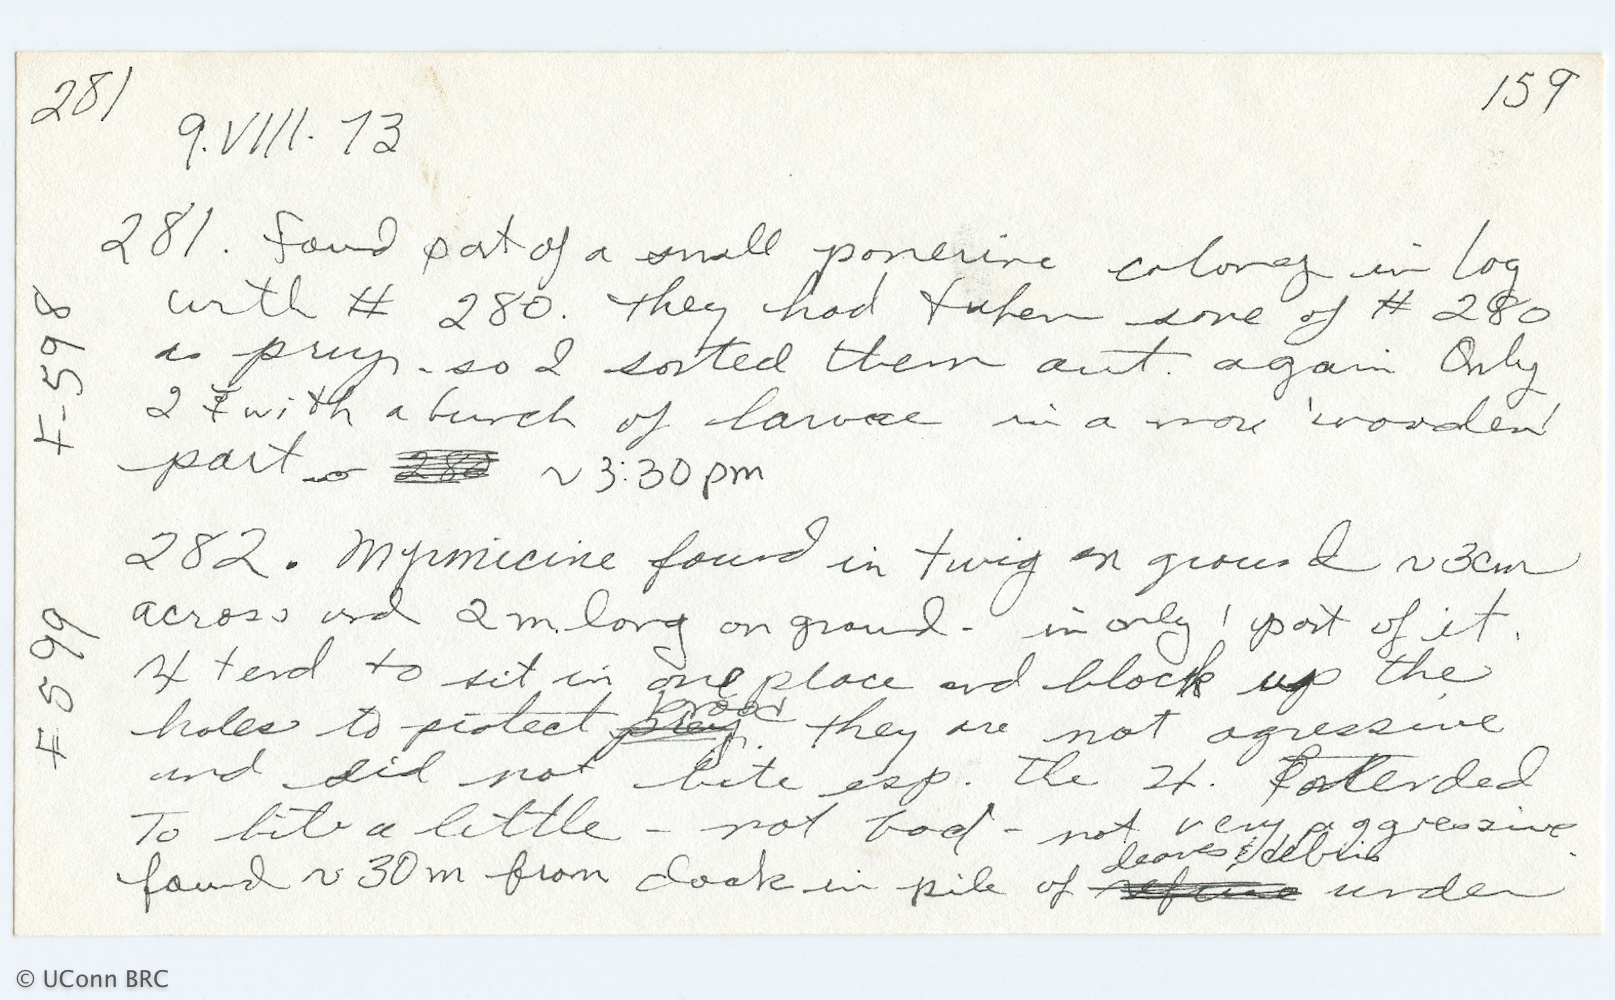 281 159
9.VIII.73
281. Found part of a small ponerine colony in log
with # 280. They had taken some of # 280
as prey. so I sorted them out. again Only
2 ☿ with a bunch of larvae in a more 'wooden'
part ~3:30pm
F-598
282. Myrmicine found in twig on ground ~3cm
across and 2m. long on ground - in only 1 part of it.
♃ tend to sit in one place and block up the
holes to protect brood. They are not agressive
and did not bite esp. the ♃. tended
To bite a little - not bad - not very aggressive.
found ~30m from dock in pile of leaves & debris under
F599
© UConn BRC